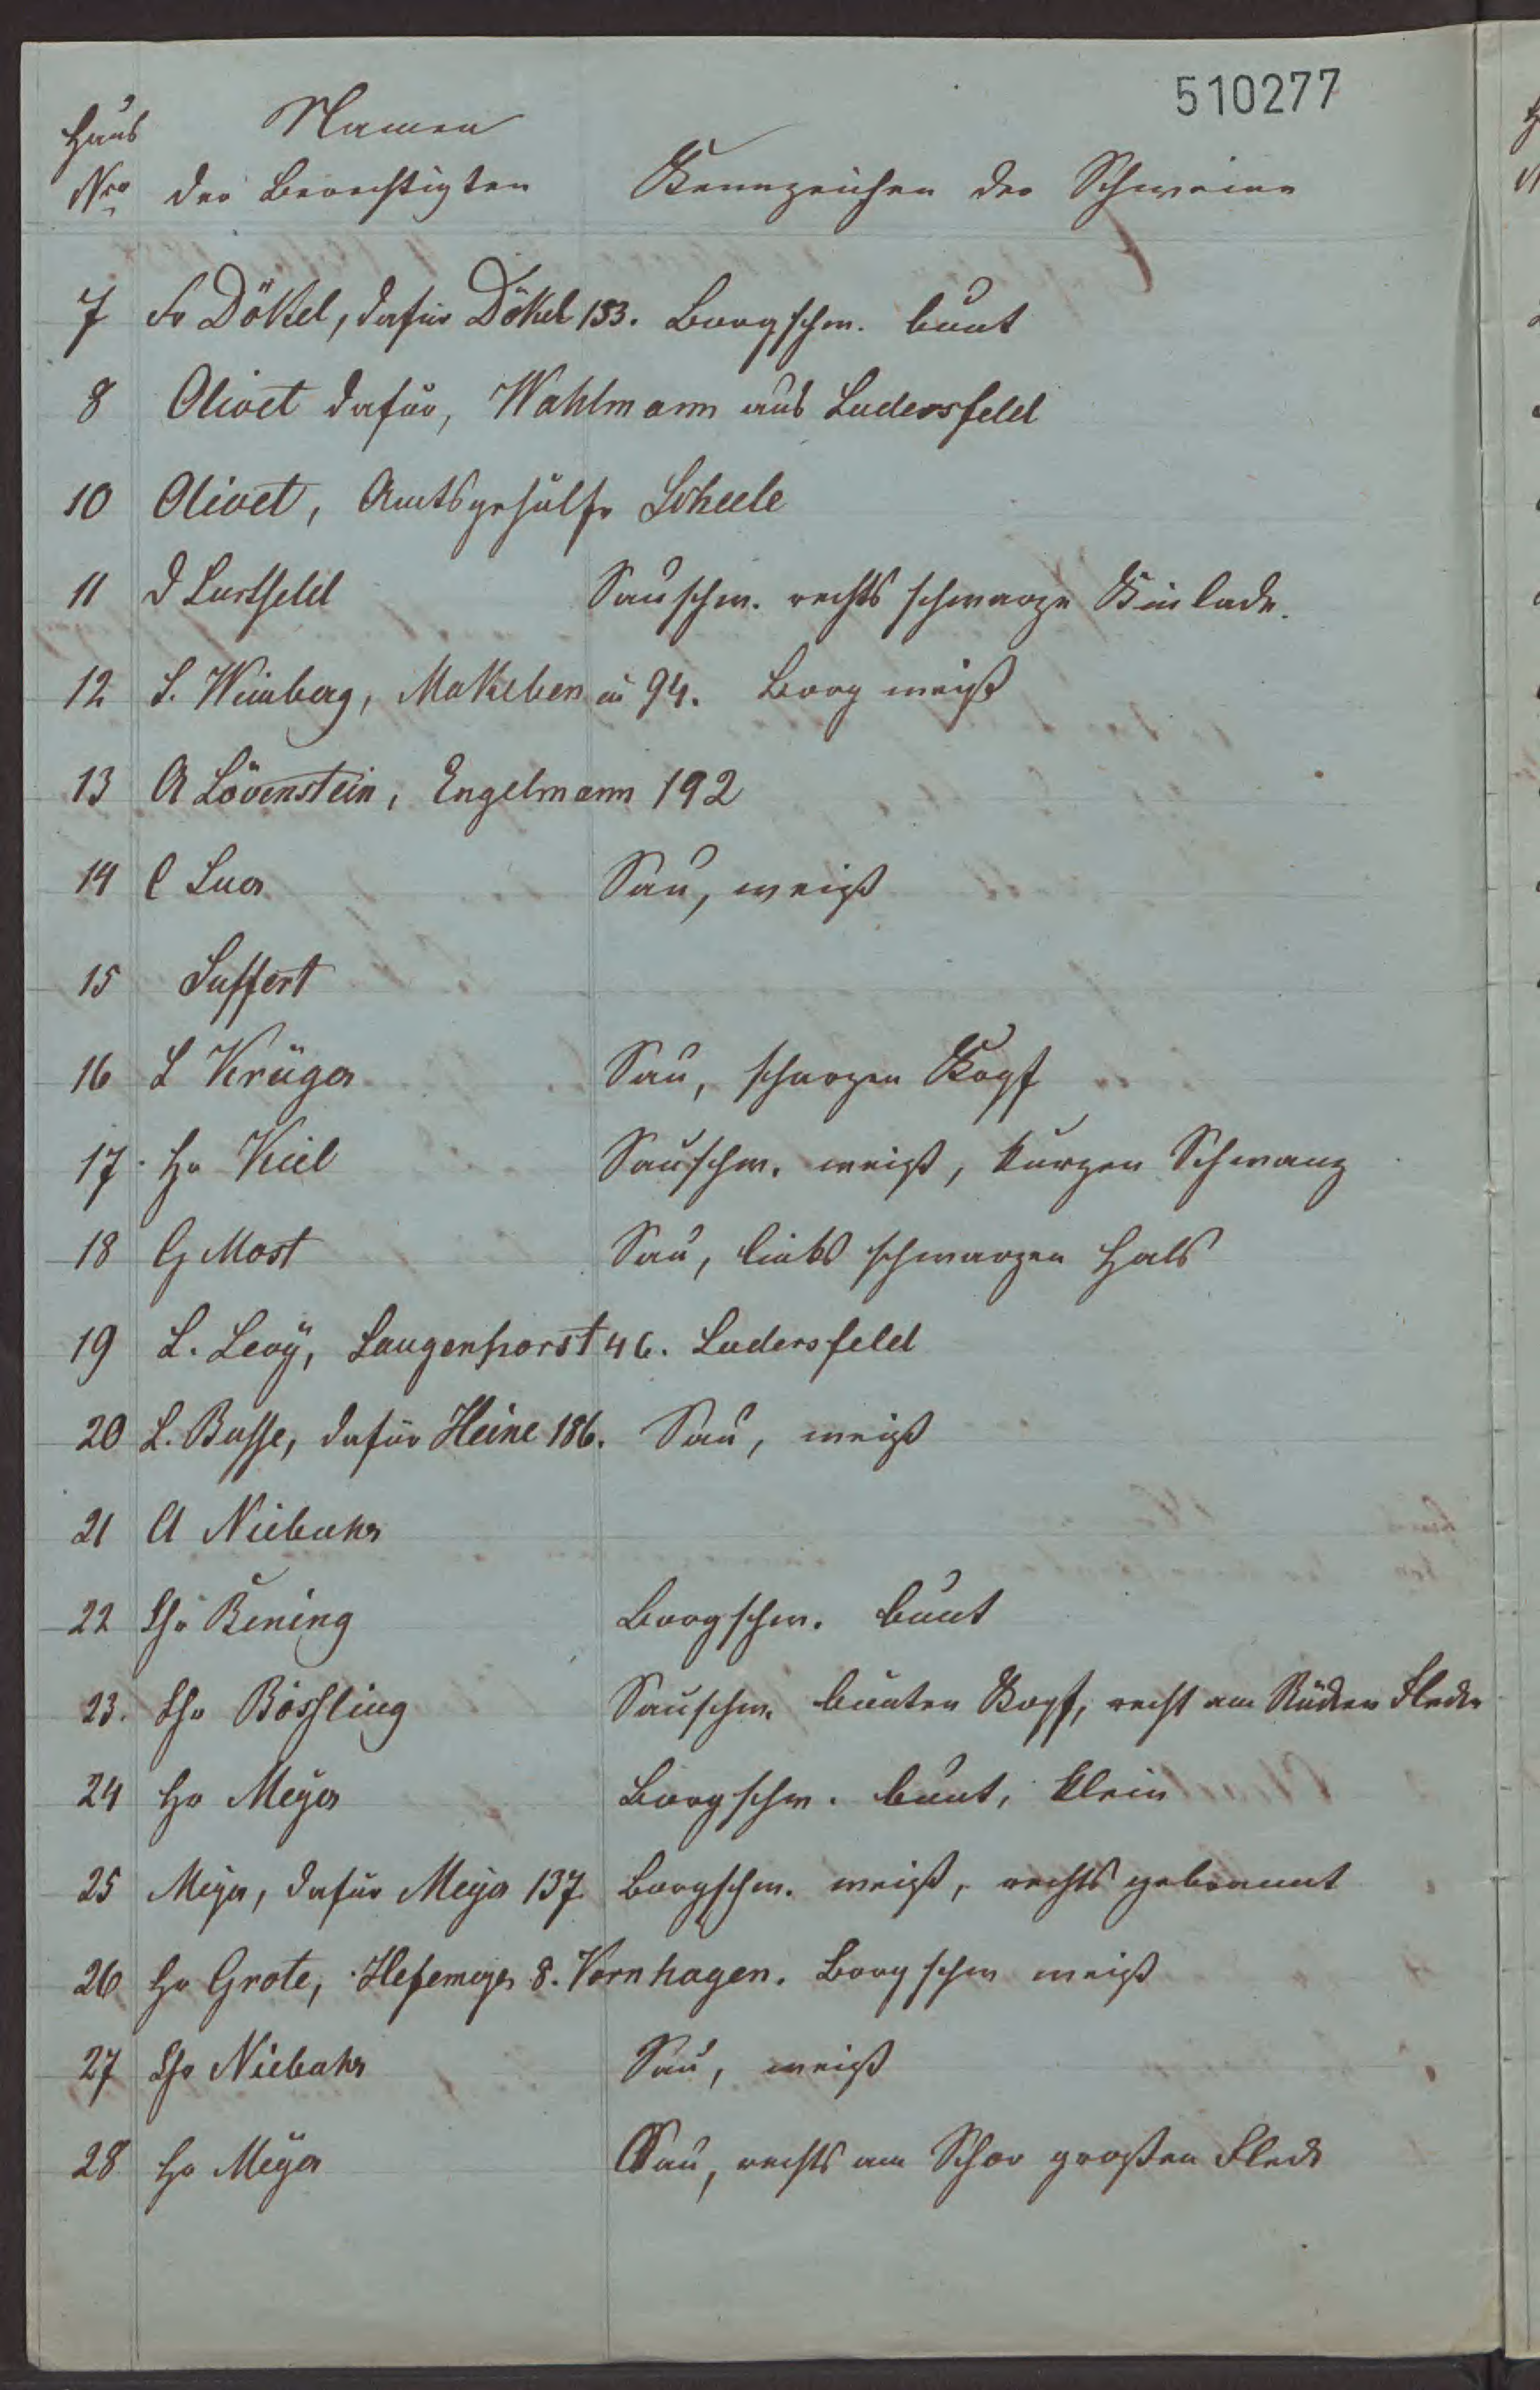 510277
Haus Namen
Nro der Berechtigten Kennzeichen der Schweine
7 Fr Dökel, dafür Dökel 153. Borgschw. bunt
8 Olivet dafür, Wahlmann aus Ludersfeld
10 Olivet, Amtsgehülfe Scheele
11 D Lustfeld Sauschw. rechts schwarze Kinlade.
12 S. Weinberg, Makeben in 94. Borg weiß
13 A Lövenstein, Engelmann 192
14 C Luer Sau, weiß
15 Suffert
16 L Krüger Sau, scharzen Kopf
17 Hr Kiel Sauschw. weiß, kurzen Schwanz
18 G Most Sau, links schwarzen Hals
19 L. Levÿ, Langenhorst 46. Ludersfeld
20 L. Busse, dafür Heine 186. Sau, weiß
21 A Niebuhr
22 Chr Bening Borgschw. bunt
23. Chr Bössling Sauschw. bunten Kopf, recht am Rücken Flecke
24 Hr Meÿer Borgschw. bunt, klein
25 Meÿer, dafür Meÿer 137 Borgschw. weiß, rechts gebrannt
26 Hr Grote, Hefemeyer 8. Vornhagen. Borgschw weiß
27 Chr Niebuhr Sau, weiß
28 Hr Meÿer Sau, rechts am großen Fleck